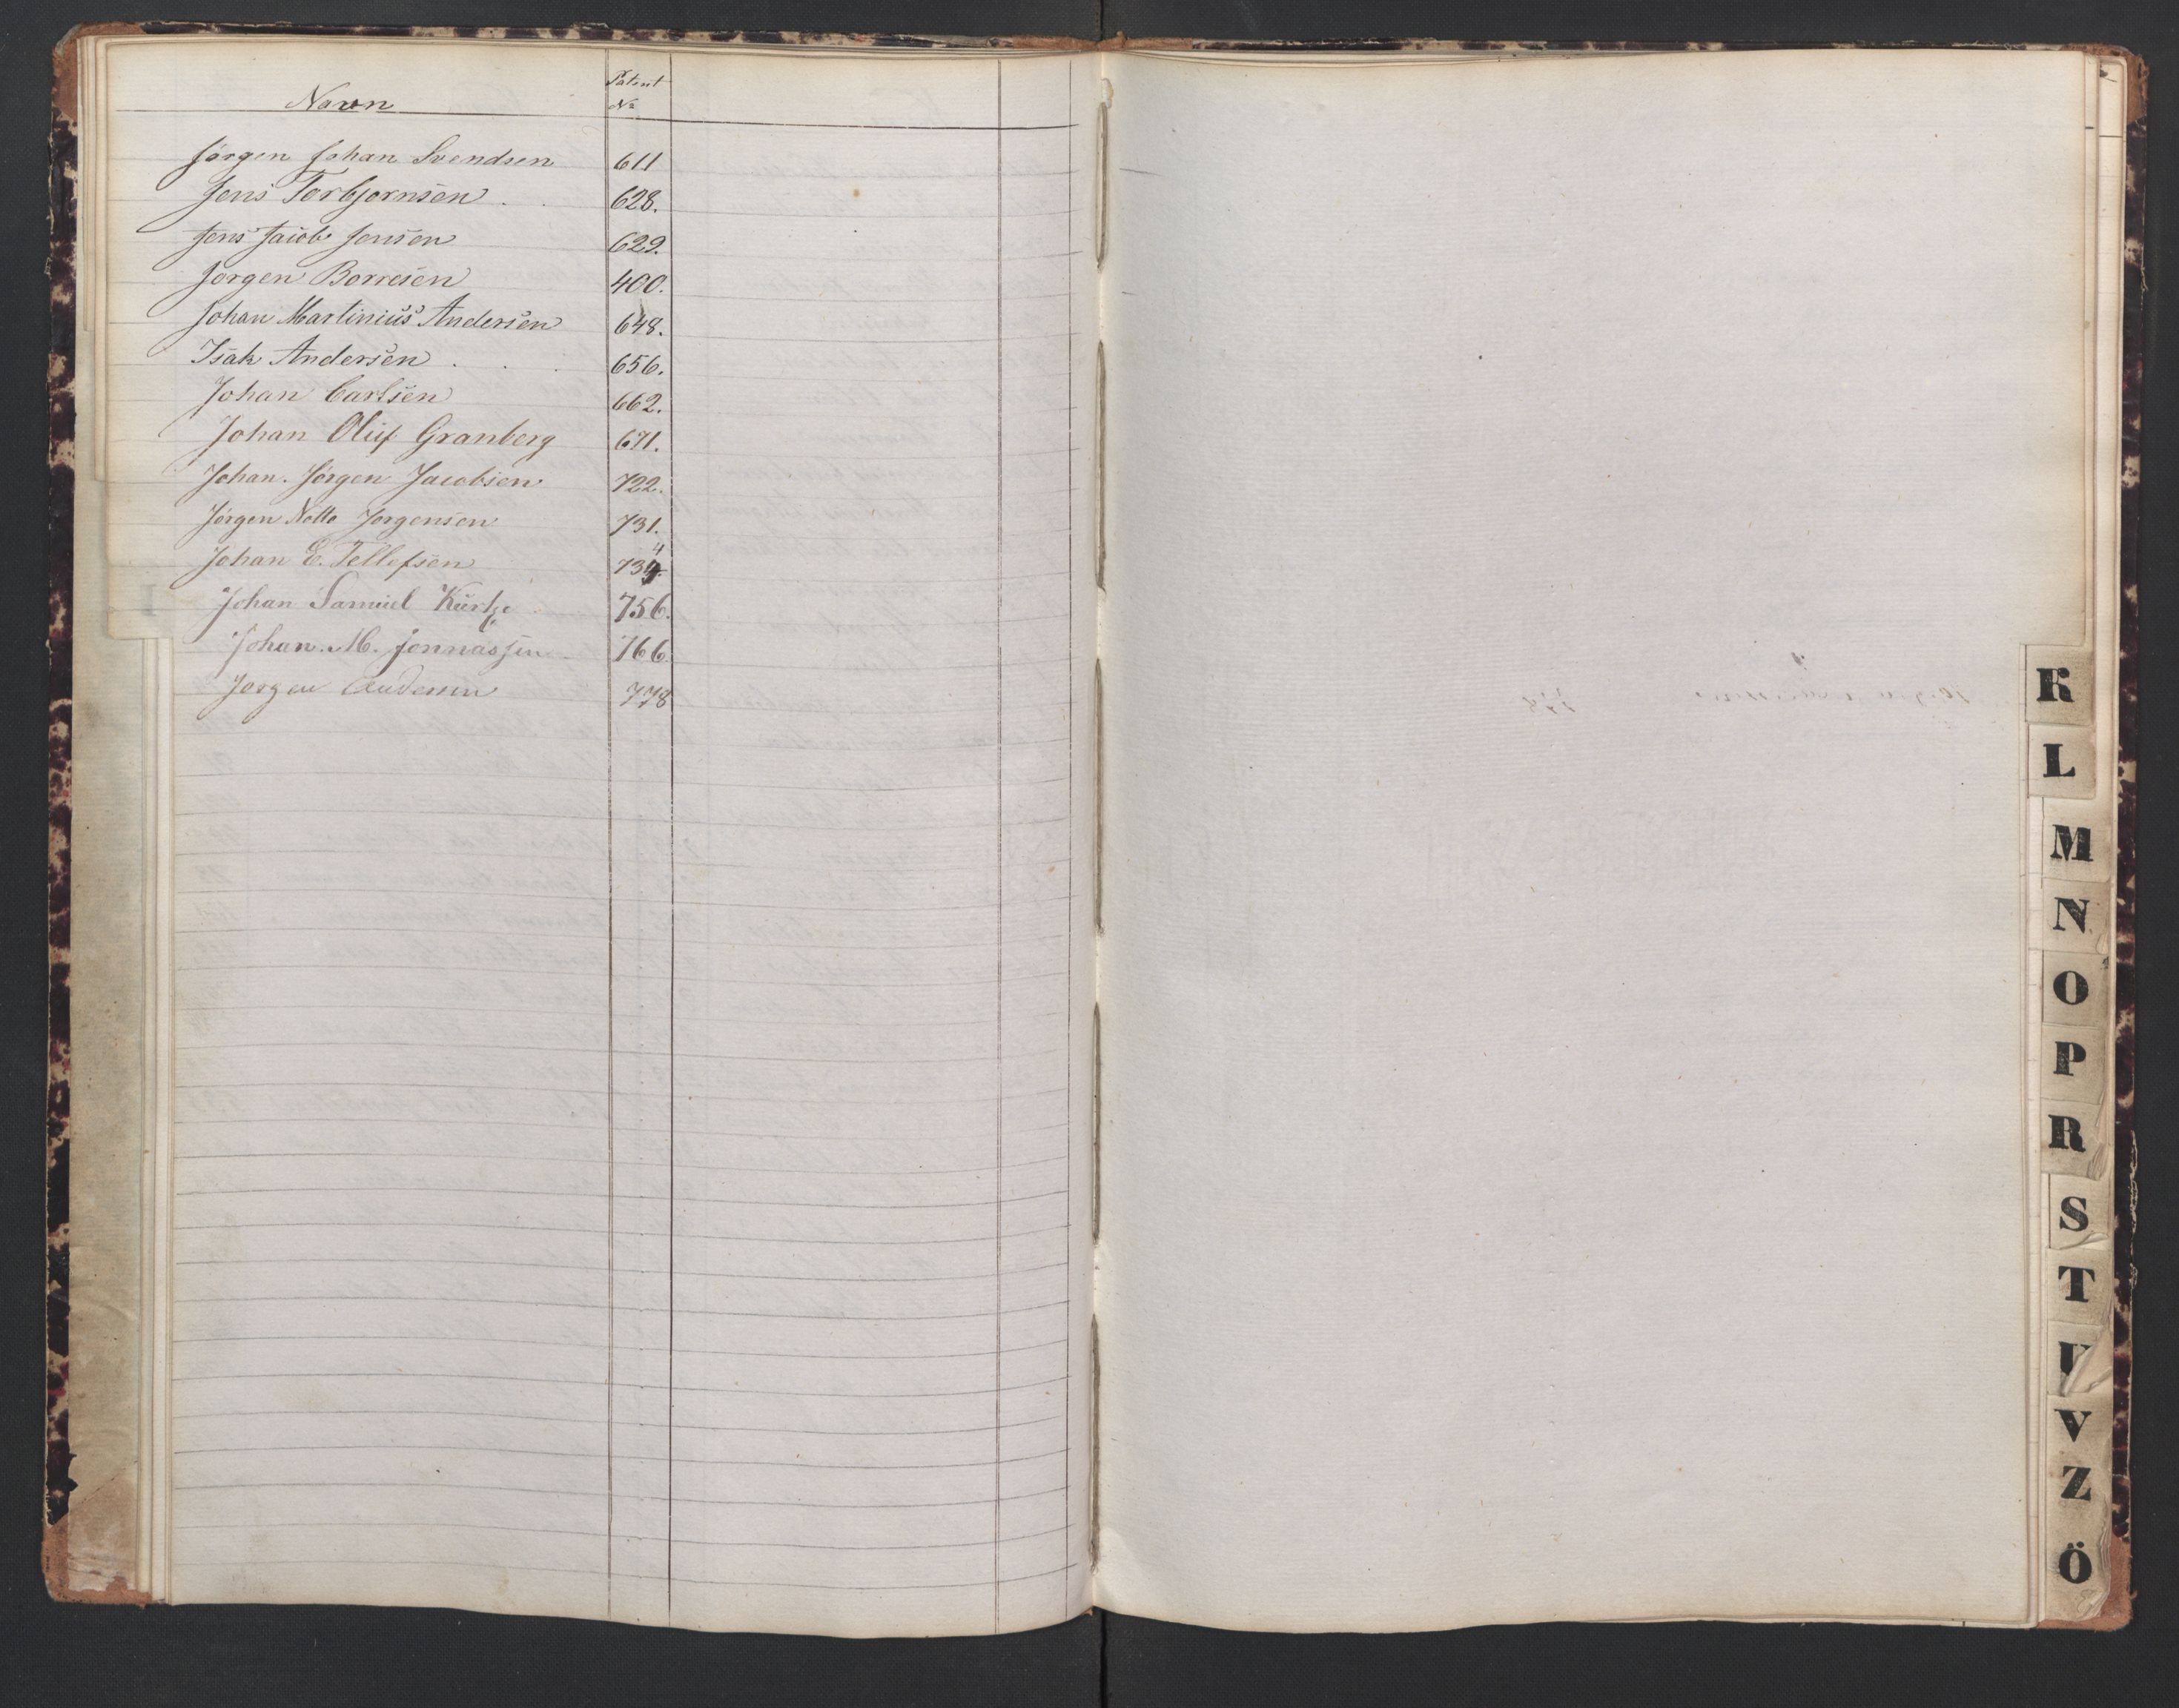 Navn Patent No
Jörgen Johan Svendsen 611
Jens Torbjornsen . . 628.
Jens Jacob Jensen 629.
Jorgen Borresen 400.
Johan Martinius Andersen 648.
Isak Andersen . . . 656.
Johan Carlsen 662.
Johan Oluf Granberg 671.
Johan. Jörgen Jacobsen 722.
Jörgen Notto Jorgensen 731.
Johan E. Tellefsen 734.
Johan Samuel Kurtze 756.
Johan. M. Jonnassen 766.
Jorgen Andersen 778
K
L
M
N
O
P
R
S
T
U
V
Z
Ö